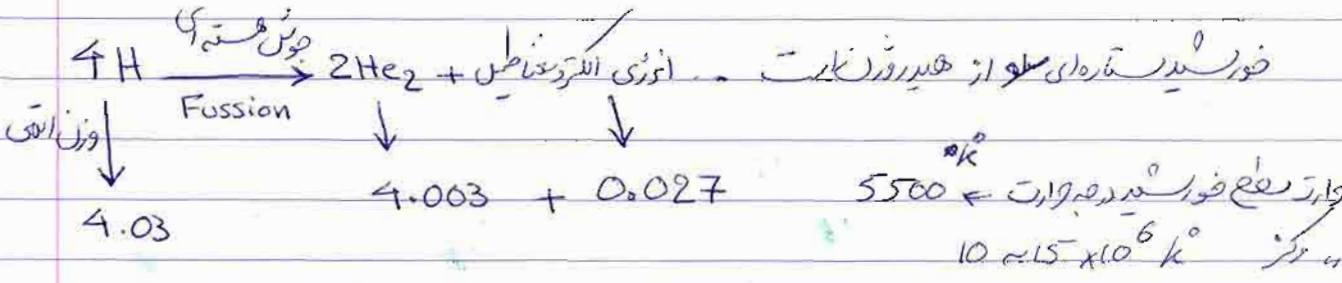 خورشید ستاره‌ای مملو از هیدروژن است ..
4H جوش هسته‌ای → 2He2 + انرژی الکترومغناطیس
Fussion
وزن اتمی
4.03 4.003 + 0.027
حرارت سطح خورشید درجه حرارت ← 5500 °k
〃 مرکز 10 ~ 15 × 10⁶ k°